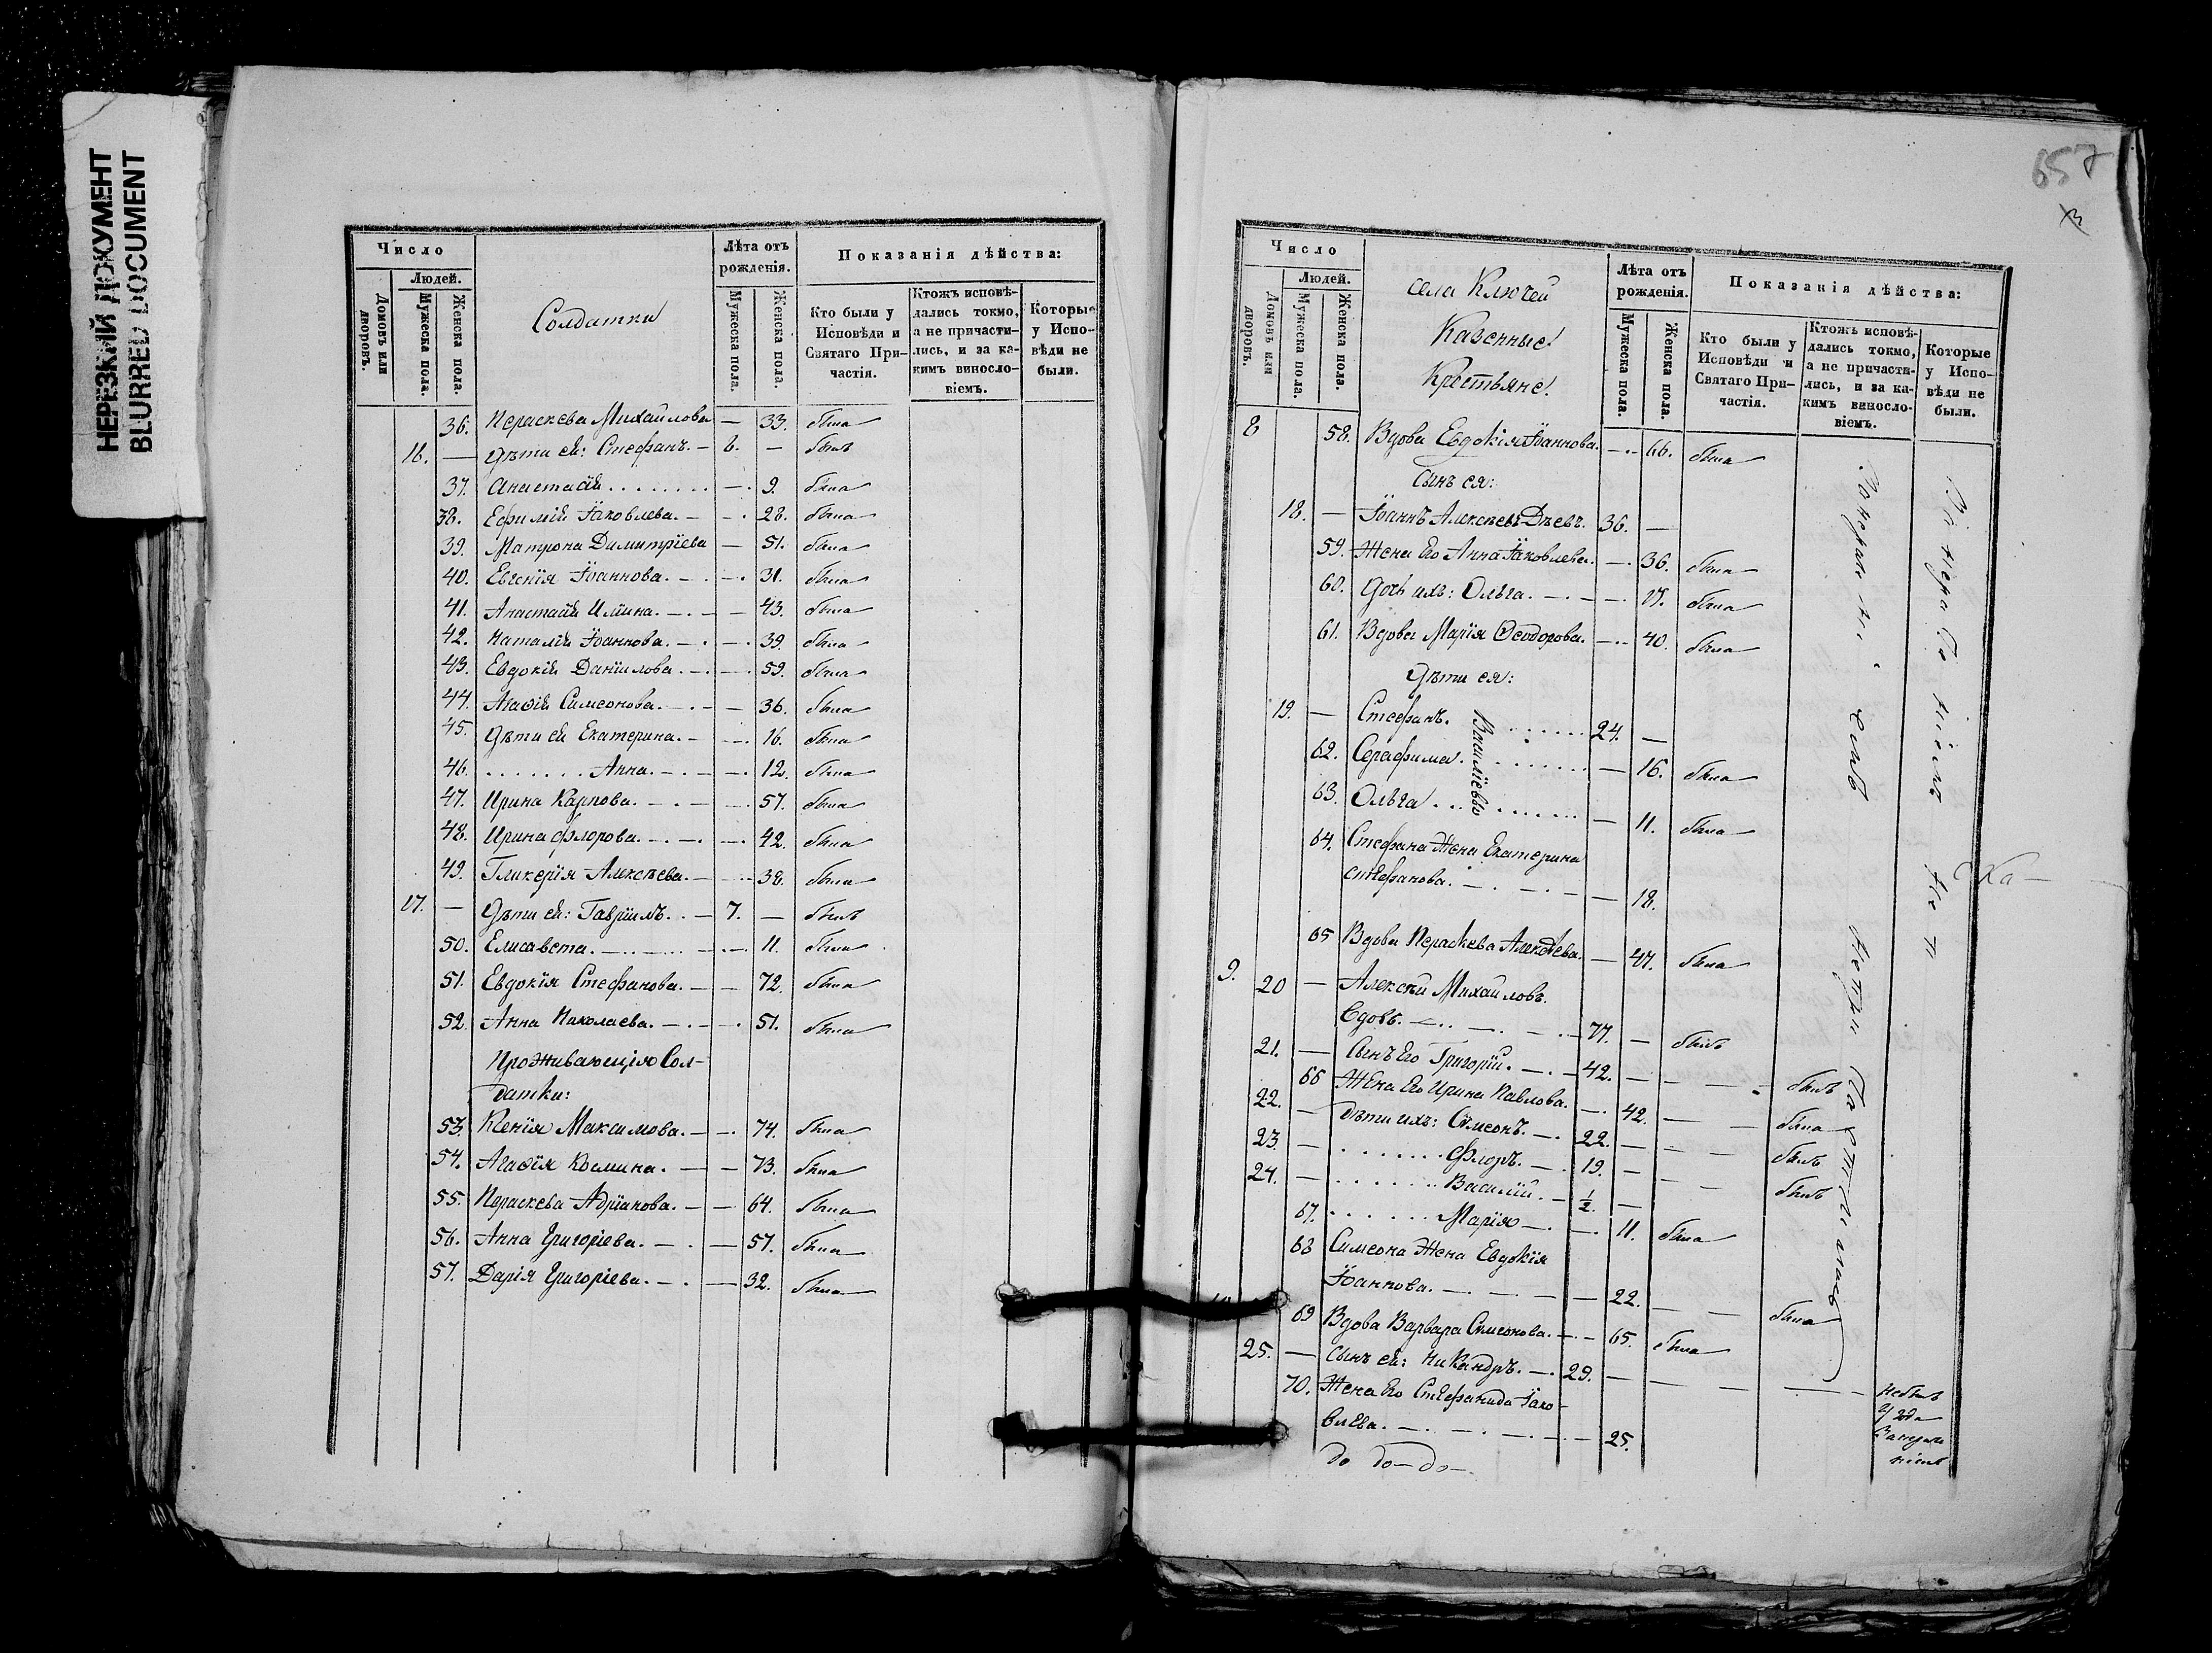 НЕРЕЗКИЙ ДОКУМЕНТ
BLURRED DOCUMENT
Число
Людей.
Домовъ или дворовъ.
Мужеска пола.
Женска пола.
Солдатки
Лѣта отъ рожденія.
Мужеска пола.
Женска пола.
Показанія дѣйства:
Кто были у Исповѣди и Святаго Причастія.
Ктожъ исповѣдались токмо, а не причастились, и за какимъ винословіемъ.
Которые у Исповѣди не были.
36. Параскева Михайлова — 33. была
16. — Дѣти ея: Стефанъ. — 6. — былъ
37. Анастасія — 9. была
38. Ефимія Іаковлева. — 28. была
39. Матрона Димитріева — 51. была
40. Евгенія Іоаннова. — 31. была
41. Анастасія Ильина. — 43. была
42. Наталія Іоаннова. — 39. была
43. Евдокія Даніилова. — 59. была
44. Агафія Симеонова. — 36. была
45. Дѣти ея Екатерина. — 16. была
46. Анна. — 12. была
47. Ирина Карпова. — 57. была
48. Ирина Флорова. — 42. была
49. Гликерія Алексѣева. — 38. была
17. — Дѣти ея: Гавріилъ. — 7. — былъ
50. Елисавета. — 11. была
51. Евдокія Стефанова. — 72. была
52. Анна Николаева. — 51. была
Проживающія Сол-
датки:
53. Ксенія Максимова. — 74. была
54. Агафія Космина. — 73. была
55. Параскева Адріанова. — 64. была
56. Анна Григоріева. — 57. была
57. Дарія Григоріева. — 32. была
657
Число
Людей.
Домовъ или дворовъ.
Мужеска пола.
Женска пола.
села Ключей
Казенные
Крестьяне!
Лѣта отъ рожденія.
Мужеска пола.
Женска пола.
Показанія дѣйства:
Кто были у Исповѣди и Святаго Причастія.
Ктожъ исповѣдались токмо, а не причастились, и за какимъ винословіемъ.
Которые у Исповѣди не были.
8 58. Вдова Евдокія Іоаннова. — 66. была
Сынъ ея:
18. — Іоаннъ Алексѣевъ 36. —
59. Жена Его Анна Іаковлева. — 36. была
60. Дочь ихъ: Ольга. — 17. была
61. Вдова Марія Ѳеодорова. — 40. была
Дѣти ея:
19. — Стефанъ. 24. —
Василіевы
62. Серафима. — 16. была
63. Ольга — 11. была
64. Стефана Жена Екатерина
Стефанова. — 18.
65 Вдова Параскева Алексѣева. — 47. была
9. 20 — Алексѣй Михайловъ
77. — былъ
21. — Сынъ Его Григорій. — 42. — былъ
66 Жена Его Ирина Павлова. — 42. — была
22. — Дѣти ихъ: Симеонъ. — 22. — былъ
23 — Флоръ. — 19. — былъ
24. — Василій. — 1/2. —
67. Марія — 11. была
68 Симеона Жена Евдокія
Іоаннова. — 22. — была
69 Вдова Варвара Симеонова. — 65. была
25. — Сынъ ея: Никандръ. — 29. — небылъ
70. Жена Его Стефанида Іако-
влева. — 25.